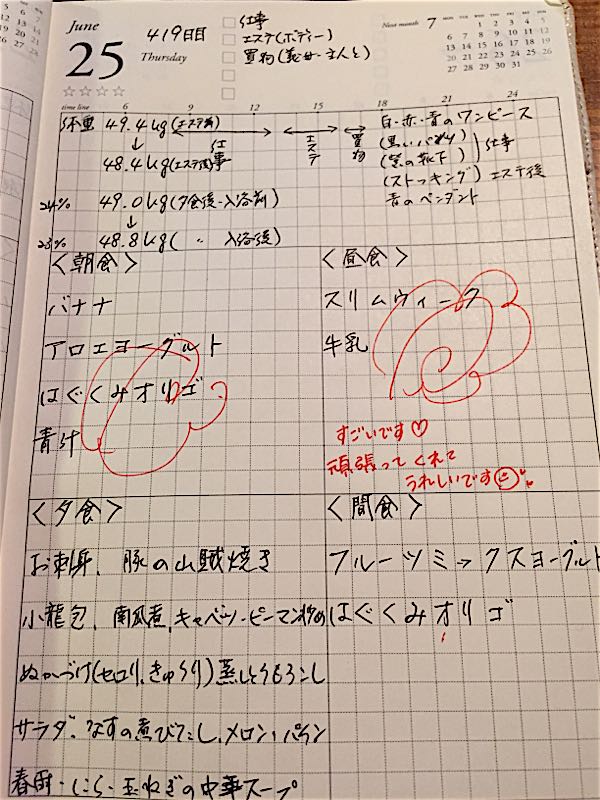 June
25
Thursday
419日目
仕事
エステ(ボディー)
買物(義母・主人と)
Next month 7
MON TUE WED THU FRI SAT SUN
1 2 3 4 5
6 7 8 9 10 11 12
13 14 15 16 17 18 19
20 21 22 23 24 25 26
27 28 29 30 31
time line 6 9 12 15 18 21 24
体重 49.4kg(エステ前)
↓
48.4kg(エステ後)
仕事
エステ
買物
24% 49.0kg(夕食後・入浴前)
↓
23% 48.8kg( 〃 入浴後)
白・赤・青のワンピース
(黒いパンツ)
(黒の靴下) 仕事
(ストッキング) エステ後
青のペンダント
<朝食>
バナナ
アロエヨーグルト
はぐくみオリゴ
青汁
<昼食>
スリムウィーク
牛乳
すごいです♡
頑張ってくれて
うれしいです
<夕食>
お刺身、豚の山賊焼き
小龍包、南瓜煮、キャベツ・ピーマン炒め
ぬかづけ(セロリ、きゅうり)蒸しとうもろこし
サラダ、なすの煮びたし、メロン・パイン
春雨・にら・玉ねぎの中華スープ
<間食>
フルーツミックスヨーグルト
はぐくみオリゴ